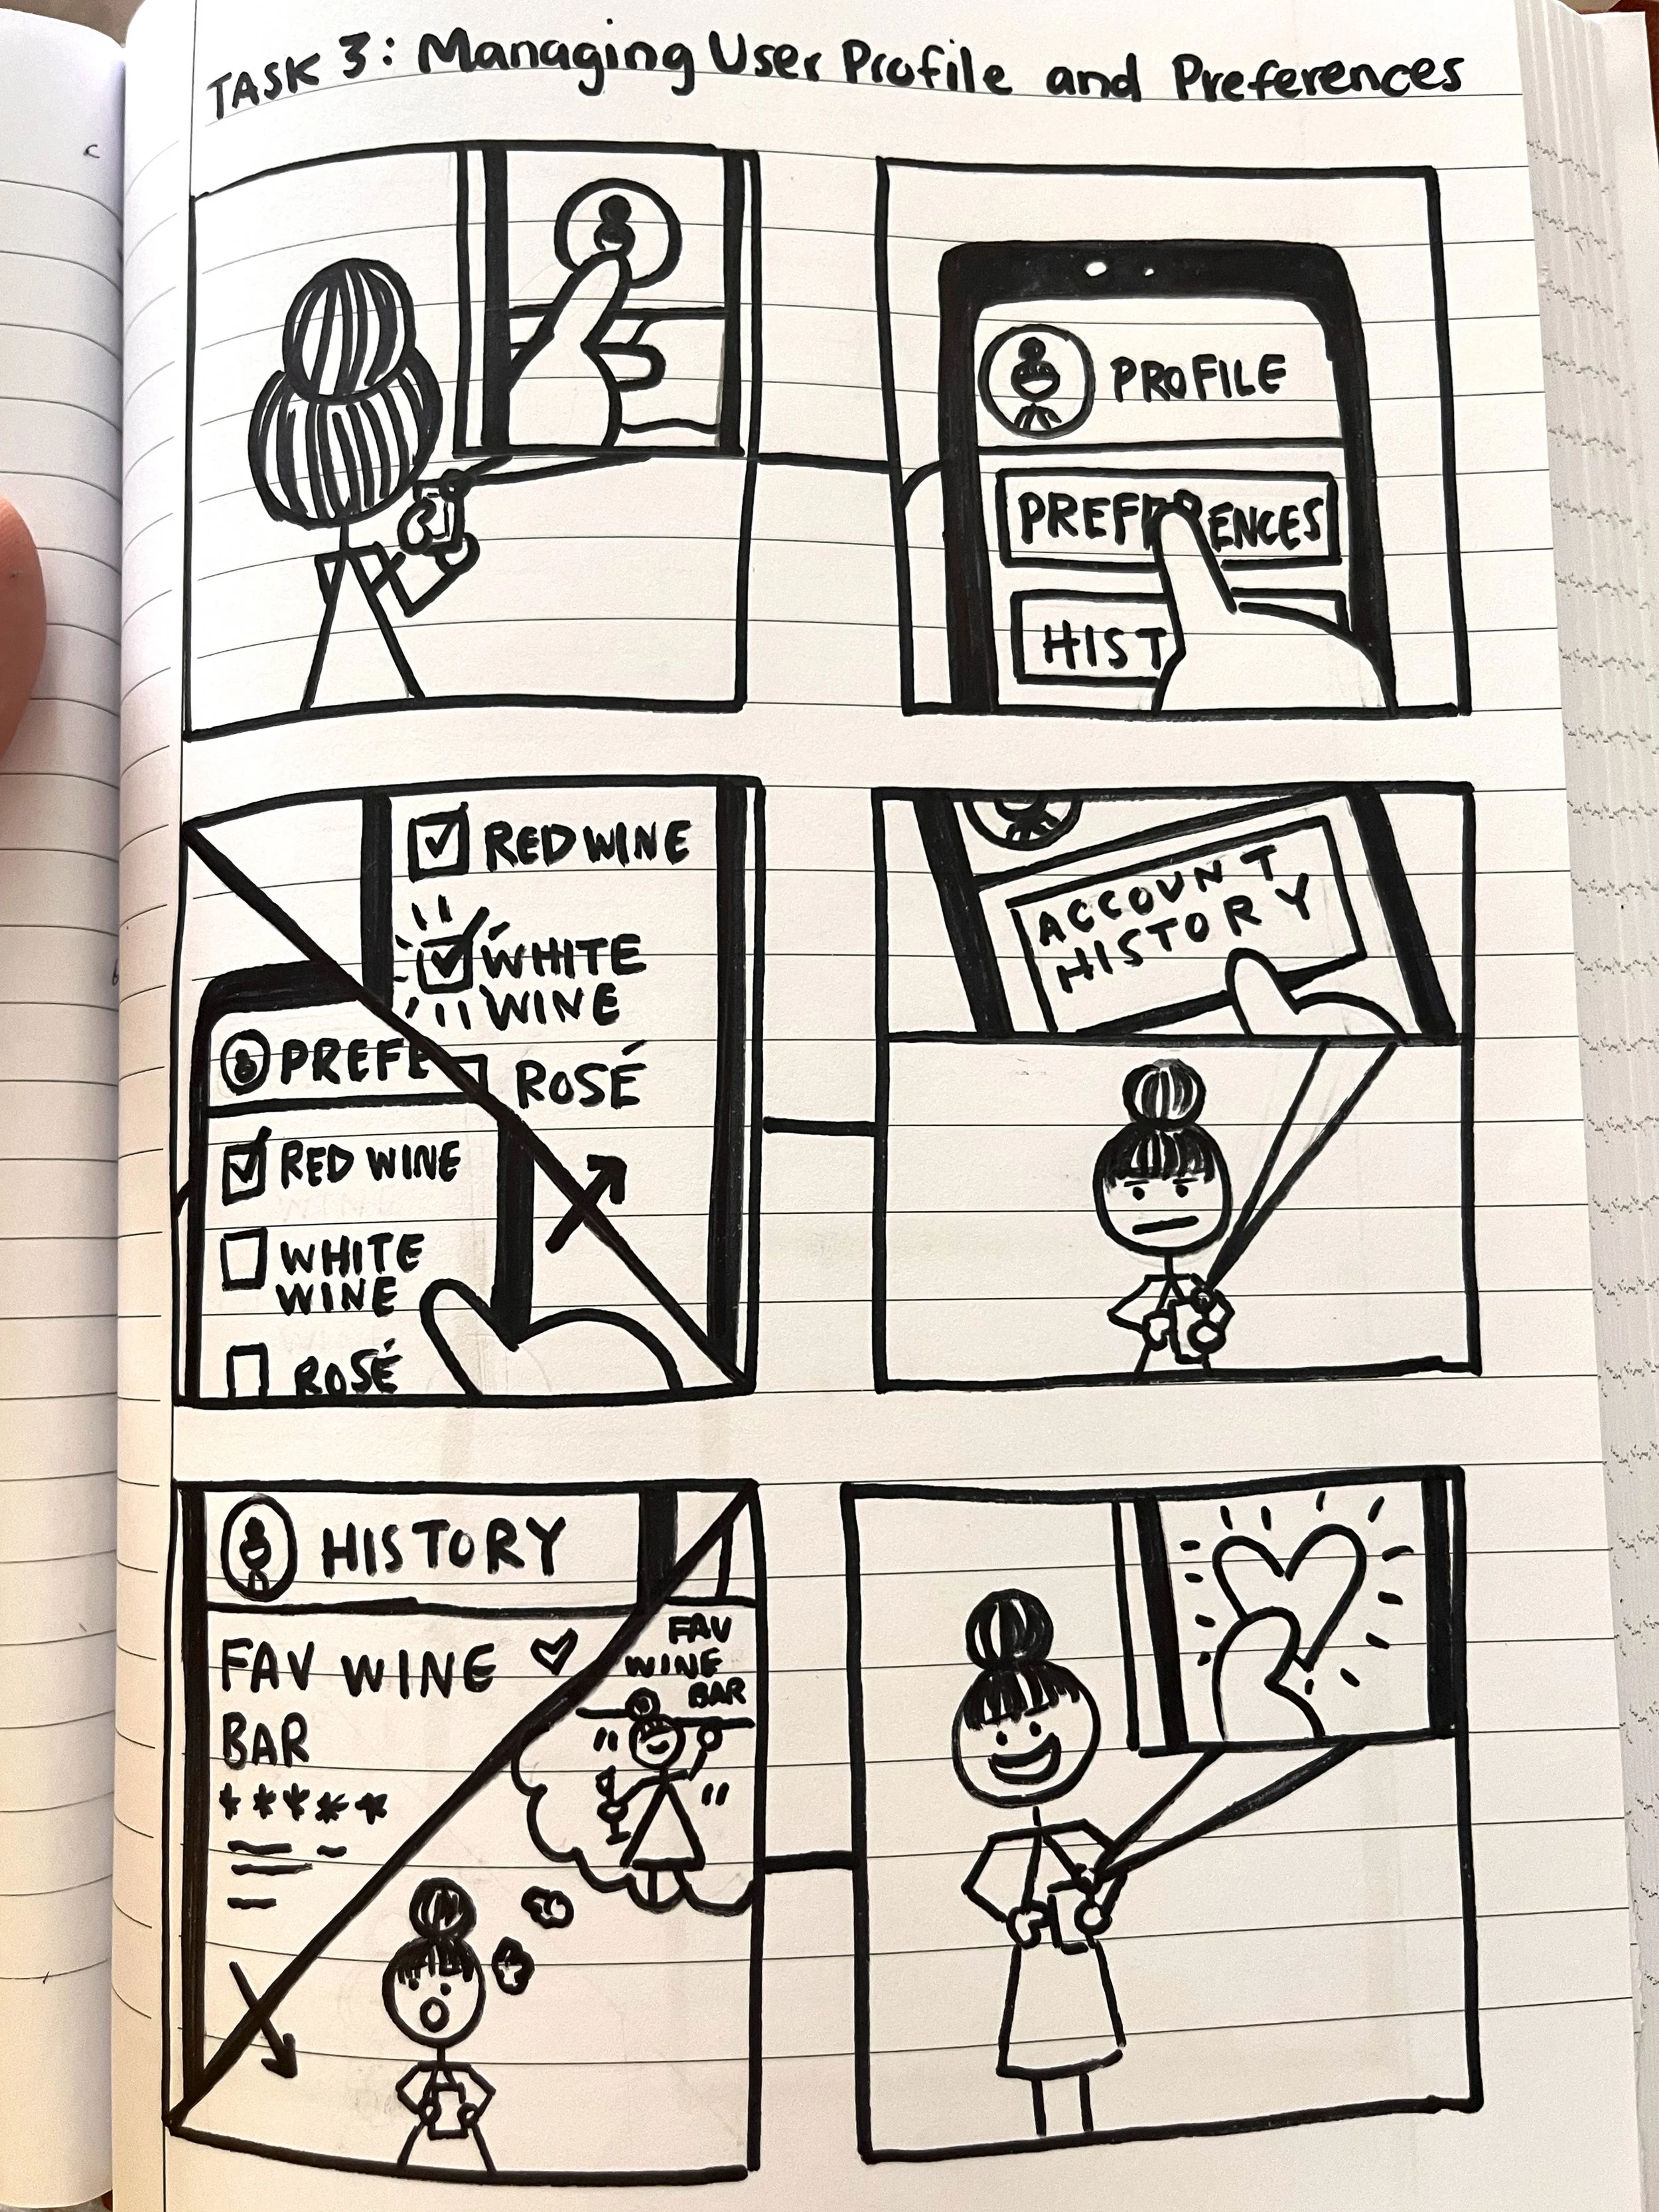 TASK 3: Managing User Profile and Preferences
PROFILE
PREFERENCES
HIST
RED WINE
WHITE
WINE
ROSÉ
PREFE
RED WINE
WHITE
WINE
ROSÉ
ACCOUNT
HISTORY
HISTORY
FAV WINE
BAR
*****
FAV
WINE
BAR